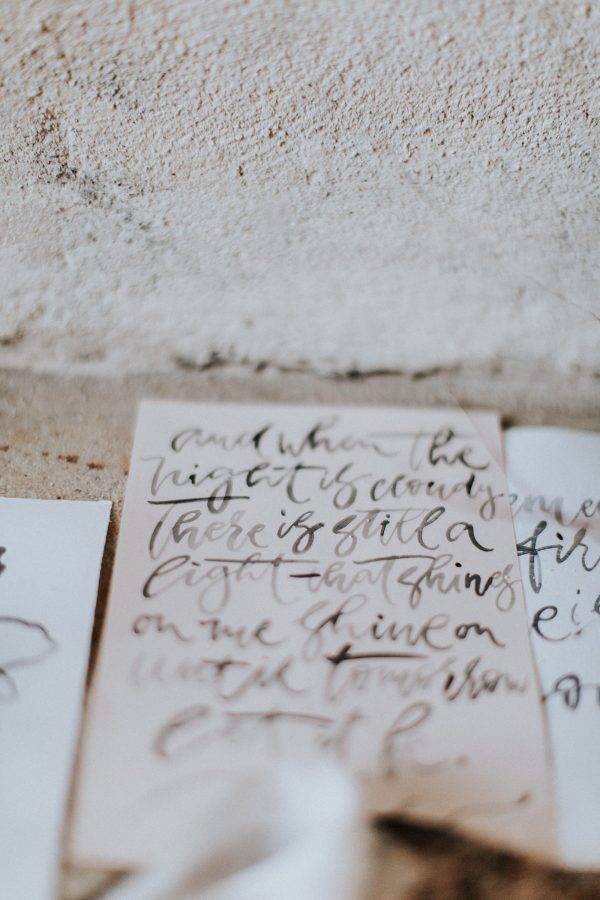 and when the
night is cloudy
There is still a
light that shines
on me shine on
until tomorrow
let it be.
fir